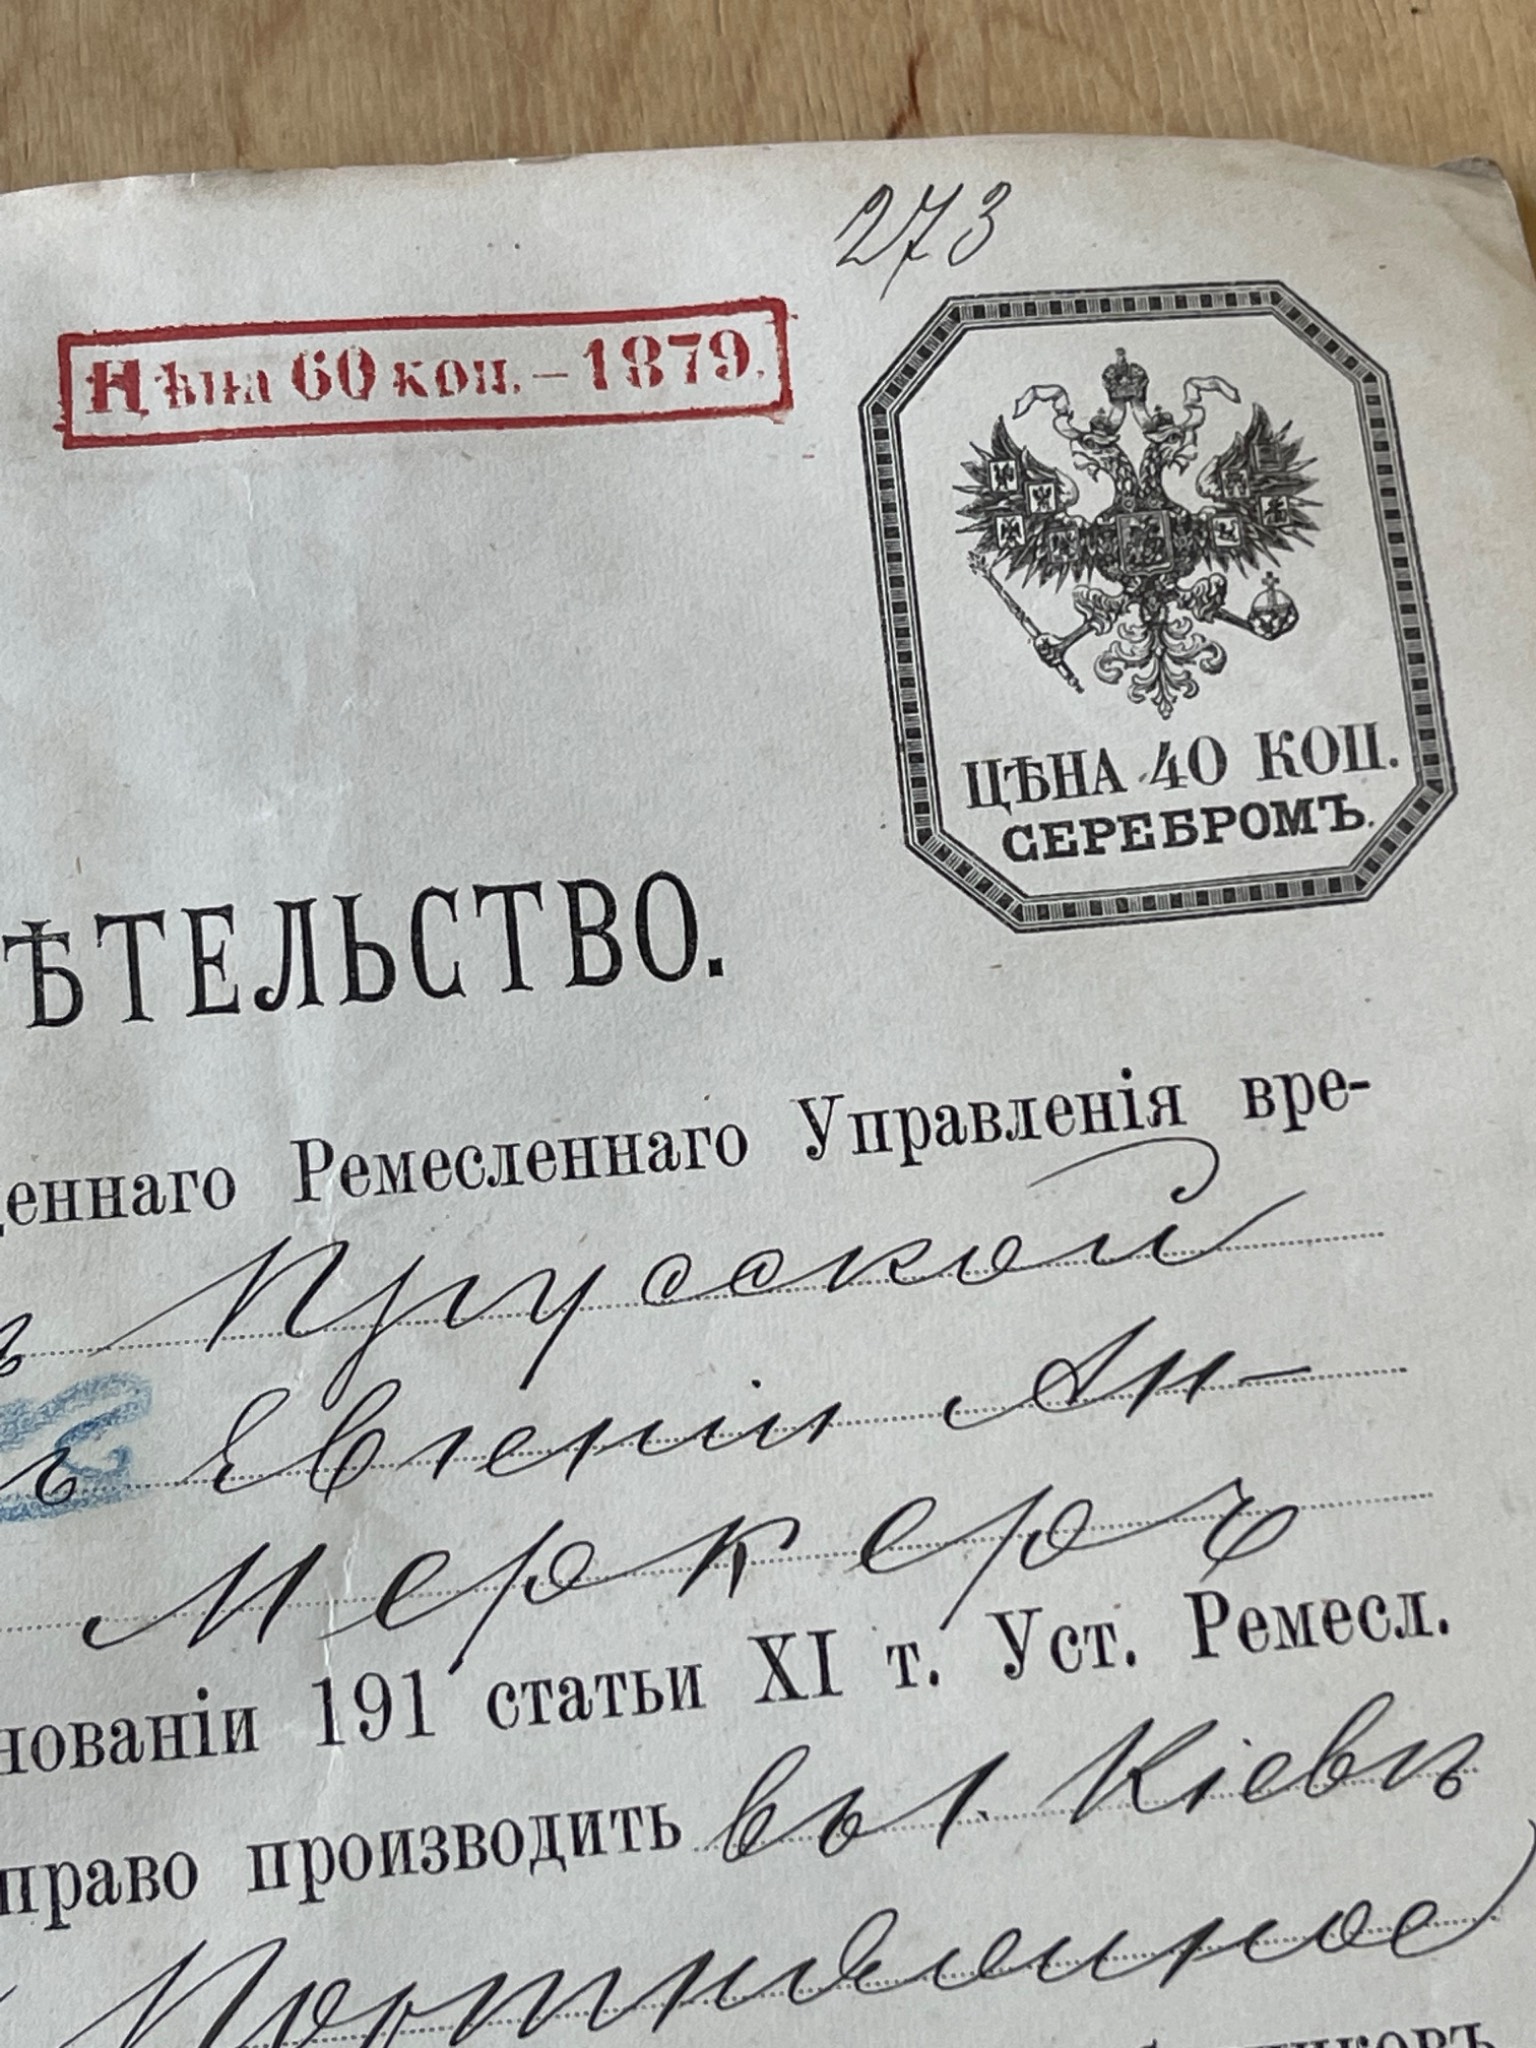 273
Цѣна 60 коп. – 1879.
ЦѢНА 40 КОП.
СЕРЕБРОМЪ.
ѢТЕЛЬСТВО.
деннаго Ремесленнаго Управленія вре-
Прусской
ъ Евгеніи Ан-
Меркеръ
нованіи 191 статьи XI т. Уст. Ремесл.
право производить въ г. Кіевѣ
Портняжное